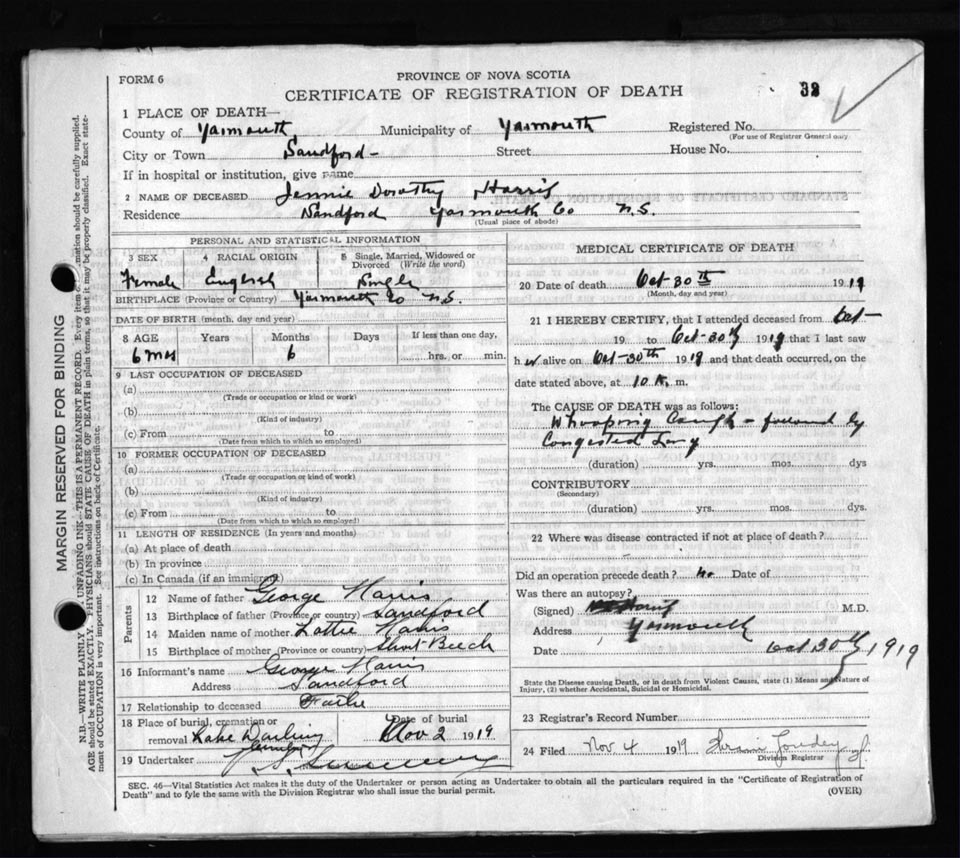 FORM 6
PROVINCE OF NOVA SCOTIA
CERTIFICATE OF REGISTRATION OF DEATH
32
1 PLACE OF DEATH—
County of Yarmouth, Municipality of Yarmouth Registered No.
(For use of Registrar General only.
City or Town Sandford - Street House No.
If in hospital or institution, give name
2 NAME OF DECEASED Jennie Dorothy Harris
Residence Sandford Yarmouth Co N.S.
(Usual place of abode)
PERSONAL AND STATISTICAL INFORMATION
3 SEX 4 RACIAL ORIGIN 5 Single, Married, Widowed or Divorced (Write the word)
Female English Single
BIRTHPLACE (Province or Country) Yarmouth Co N.S.
DATE OF BIRTH (month, day and year)
8 AGE Years Months Days If less than one day,
6 mos 6 hrs. or min.
9 LAST OCCUPATION OF DECEASED
(a)
(Trade or occupation or kind or work)
(b)
(Kind of industry)
(c) From to
(Date from which to which so employed)
10 FORMER OCCUPATION OF DECEASED
(a)
(Trade or occupation or kind of work)
(b)
(Kind of industry)
(c) From to
(Date from which to which so employed)
11 LENGTH OF RESIDENCE (In years and months)
(a) At place of death
(b) In province
(c) In Canada (if an immigrant)
Parents
12 Name of father George Harris
13 Birthplace of father (Province or country) Sandford
14 Maiden name of mother Lottie Harris
15 Birthplace of mother (Province or country) Short Beech
16 Informant's name George Harris
Address Sandford
17 Relationship to deceased Father
18 Place of burial, cremation or Date of burial
removal Lake Darling Nov 2 1919
19 Undertaker
MEDICAL CERTIFICATE OF DEATH
20 Date of death Oct 30th 1919
(Month, day and year)
21 I HEREBY CERTIFY, that I attended deceased from Oct -
19 to Oct - 30th 1919 that I last saw
h er alive on Oct - 30th 1919 and that death occurred, on the
date stated above, at 10 A. m.
The CAUSE OF DEATH was as follows:
Whooping Cough - followed by
Congested
(duration) yrs. mos. dys
CONTRIBUTORY
(Secondary)
(duration) yrs. mos. dys.
22 Where was disease contracted if not at place of death?
Did an operation precede death? no Date of
Was there an autopsy?
(Signed) M.D.
Address Yarmouth
Date Oct 30th 1919
State the Disease causing Death, or in death from Violent Causes, state (1) Means and Nature of
Injury, (2) whether Accidental, Suicidal or Homicidal.
23 Registrar's Record Number
24 Filed Nov 4 1919
Division Registrar
SEC. 46—Vital Statistics Act makes it the duty of the Undertaker or person acting as Undertaker to obtain all the particulars required in the "Certificate of Registration of
Death" and to fyle the same with the Division Registrar who shall issue the burial permit. (OVER)
MARGIN RESERVED FOR BINDING
N.B.—WRITE PLAINLY UNFADING INK—THIS IS A PERMANENT RECORD. Every item mation should be carefully supplied.
AGE should be stated EXACTLY. PHYSICIANS should STATE CAUSE OF DEATH in plain terms, so that it may be properly classified. Exact state-
ment of OCCUPATION is very important. See instructions on back of Certificate.